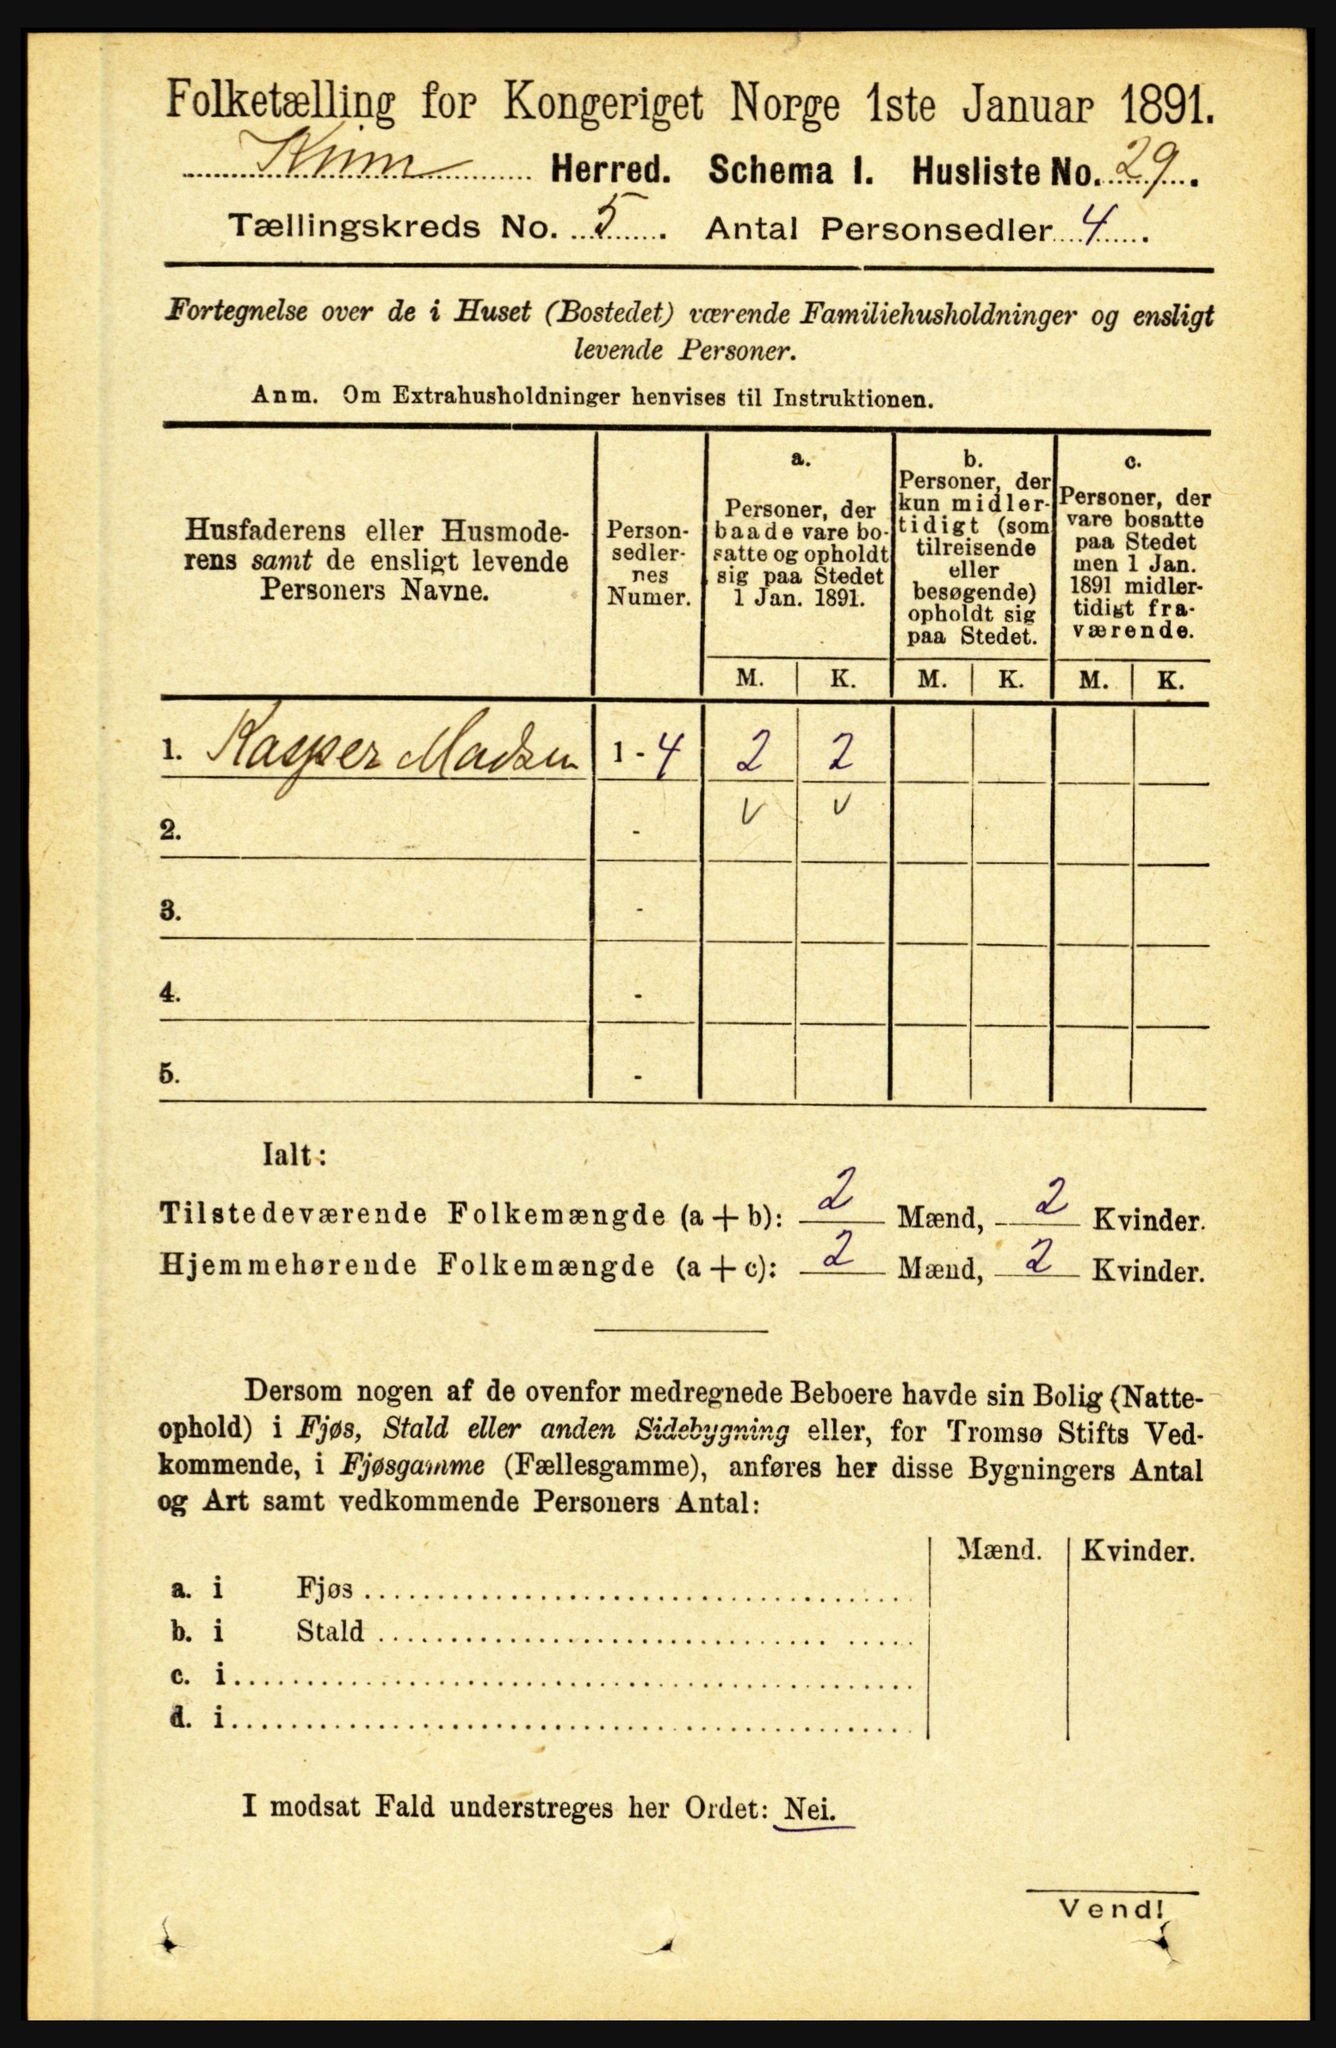 Folketælling for Kongeriget Norge 1ste Januar 1891.
Kinn Herred. Schema I. Husliste No. 29.
Tællingskreds No. 5. Antal Personsedler 4.
Fortegnelse over de i Huset (Bostedet) værende Familiehusholdninger og ensligt
levende Personer.
Anm. Om Extrahusholdninger henvises til Instruktionen.
Husfaderens eller Husmode-
rens samt de ensligt levende
Personers Navne.
Person-
sedler-
nes
Numer.
a.
Personer, der
baade vare bo-
satte og opholdt
sig paa Stedet
1 Jan. 1891.
b.
Personer, der
kun midler-
tidigt (som
tilreisende
eller
besøgende)
opholdt sig
paa Stedet.
c.
Personer, der
vare bosatte
paa Stedet
men 1 Jan.
1891 midler-
tidigt fra-
værende.
M. K. M. K. M. K.
1. Kasper Madsen 1 - 4 2 2
2. - v v
3. -
4. -
5. -
Ialt:
Tilstedeværende Folkemængde (a + b): 2 Mænd, 2 Kvinder.
Hjemmehørende Folkemængde (a + c): 2 Mænd, 2 Kvinder.
Dersom nogen af de ovenfor medregnede Beboere havde sin Bolig (Natte-
ophold) i Fjøs, Stald eller anden Sidebygning eller, for Tromsø Stifts Ved-
kommende, i Fjøsgamme (Fællesgamme), anføres her disse Bygningers Antal
og Art samt vedkommende Personers Antal:
Mænd. Kvinder.
a. i Fjøs
b. i Stald
c. i
d. i
I modsat Fald understreges her Ordet: Nei.
Vend!